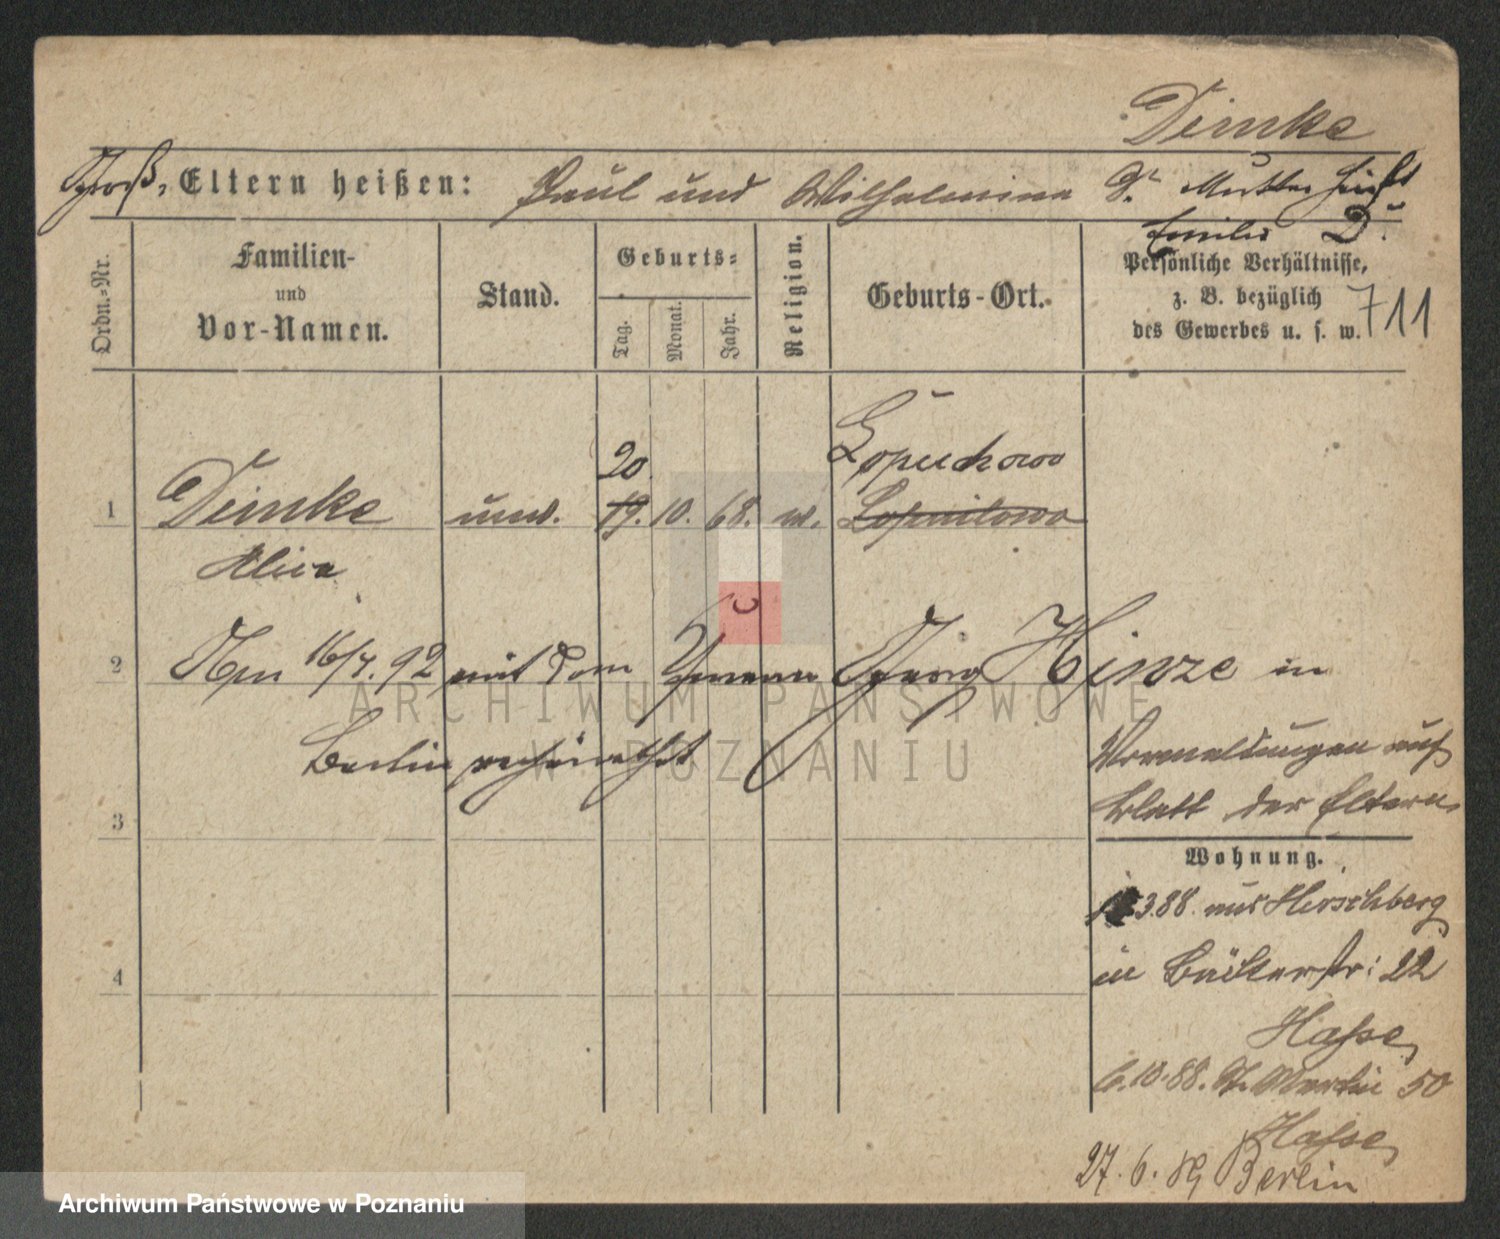 Dimke
Groß-Eltern heißen: Paul und Wilhelmina D. Mutter heißt
Emilie D.
Ordn.-Nr.
Familien-
und
Vor-Namen.
Stand.
Geburts-
Tag.
Monat.
Jahr.
Religion.
Geburts-Ort.
Persönliche Verhältnisse,
z. B. bezüglich
des Gewerbes u. s. w. 711
20 Lopuchowo
1 Dimke unv. 19. 10. 68. w.
Alice
2 Am 16/7. 92 mit dem Georg Hinze in
Berlin verheirathet
ARCHIWUM PAŃSTWOWE
W POZNANIU
Bemerkungen auf
Blatt der Eltern
3
Wohnung.
3.88. aus Hirschberg
4 in Bäckerstr: 22
Hasse
6.10.88. St. Martin 50
Hasse
27. 6. 89 Berlin
Archiwum Państwowe w Poznaniu